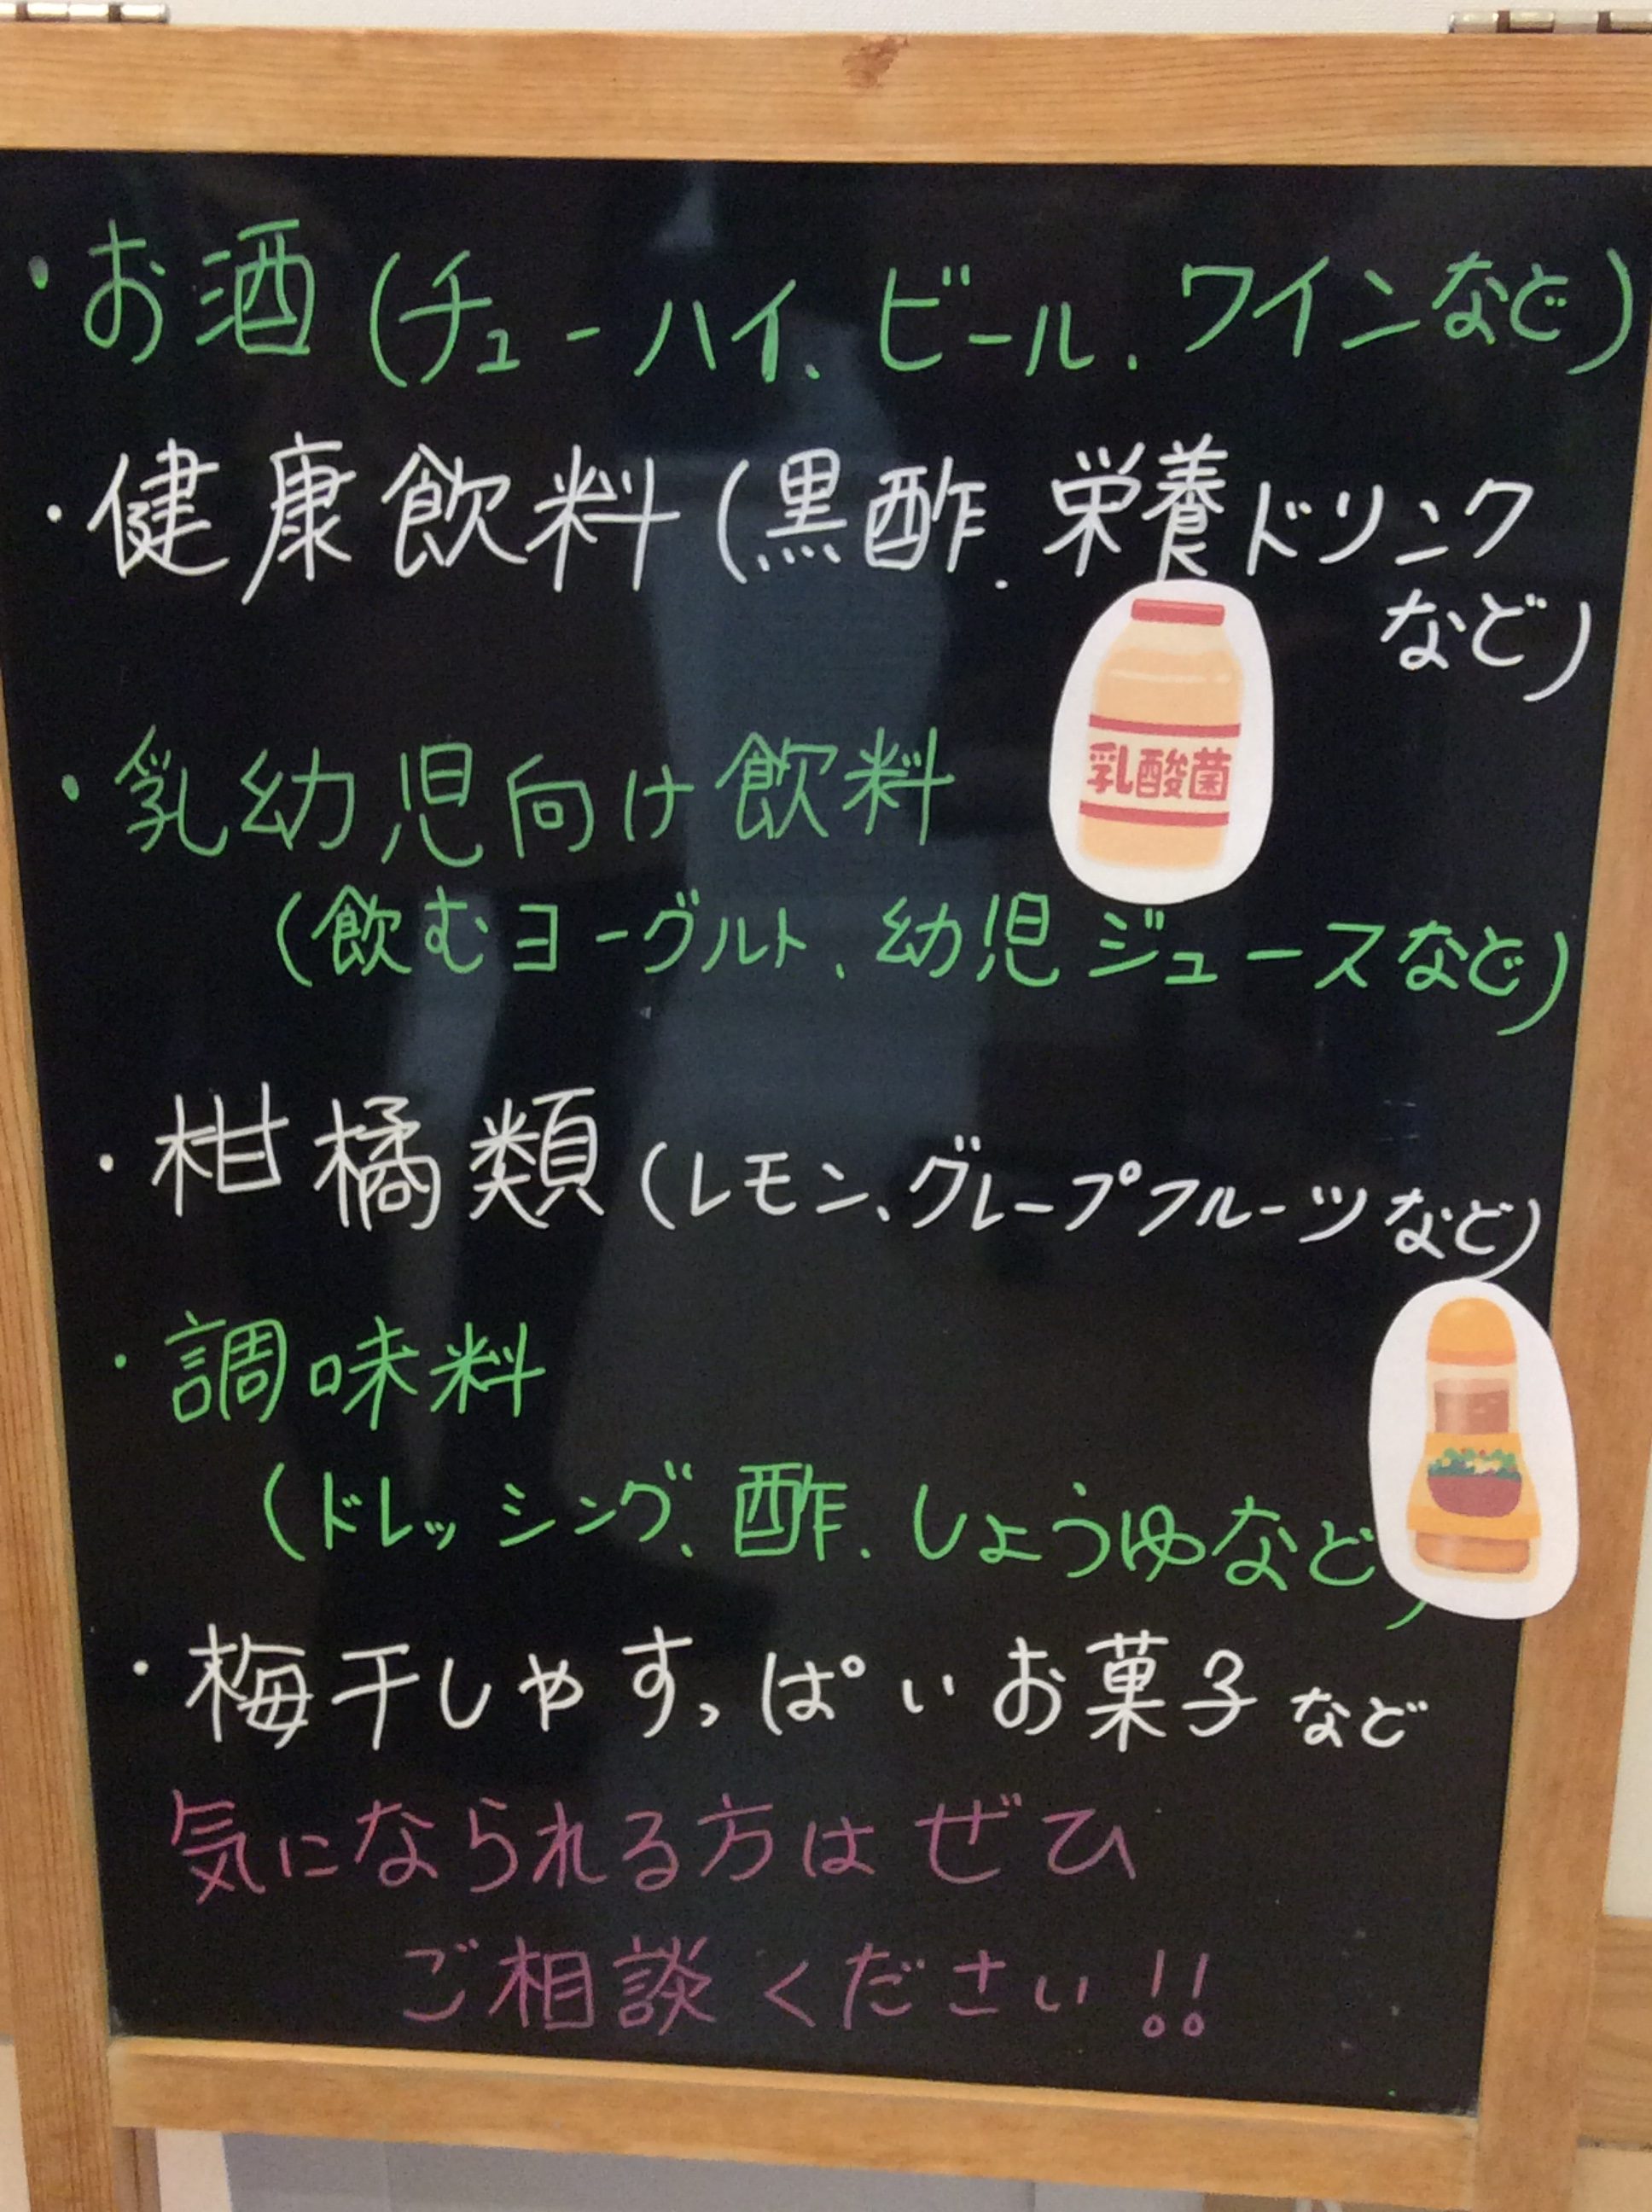 ・お酒(チューハイ、ビール、ワインなど)
・健康飲料(黒酢、栄養ドリンク
など)
乳酸菌
・乳幼児向け飲料
(飲むヨーグルト、幼児ジュースなど)
・柑橘類(レモン、グレープフルーツなど)
・調味料
(ドレッシング、酢、しょうゆなど)
・梅干しやすっぱいお菓子など
気になられる方はぜひ
ご相談ください!!